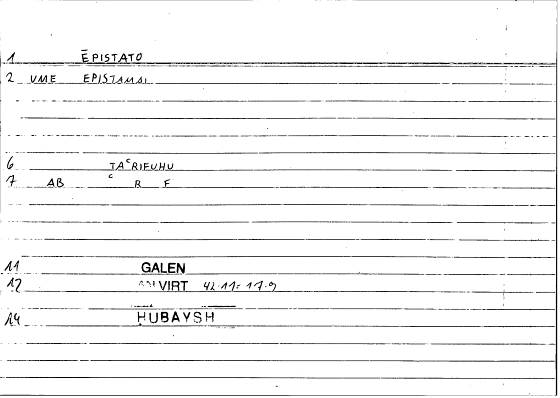 1 ĒPISTATO
2 VME EPISTAMAI
6 TAᶜRIFUHU
7 AB ᶜ R F
11 GALEN
12 AN VIRT 42.11= 17.9
14 ḤUBAYSH